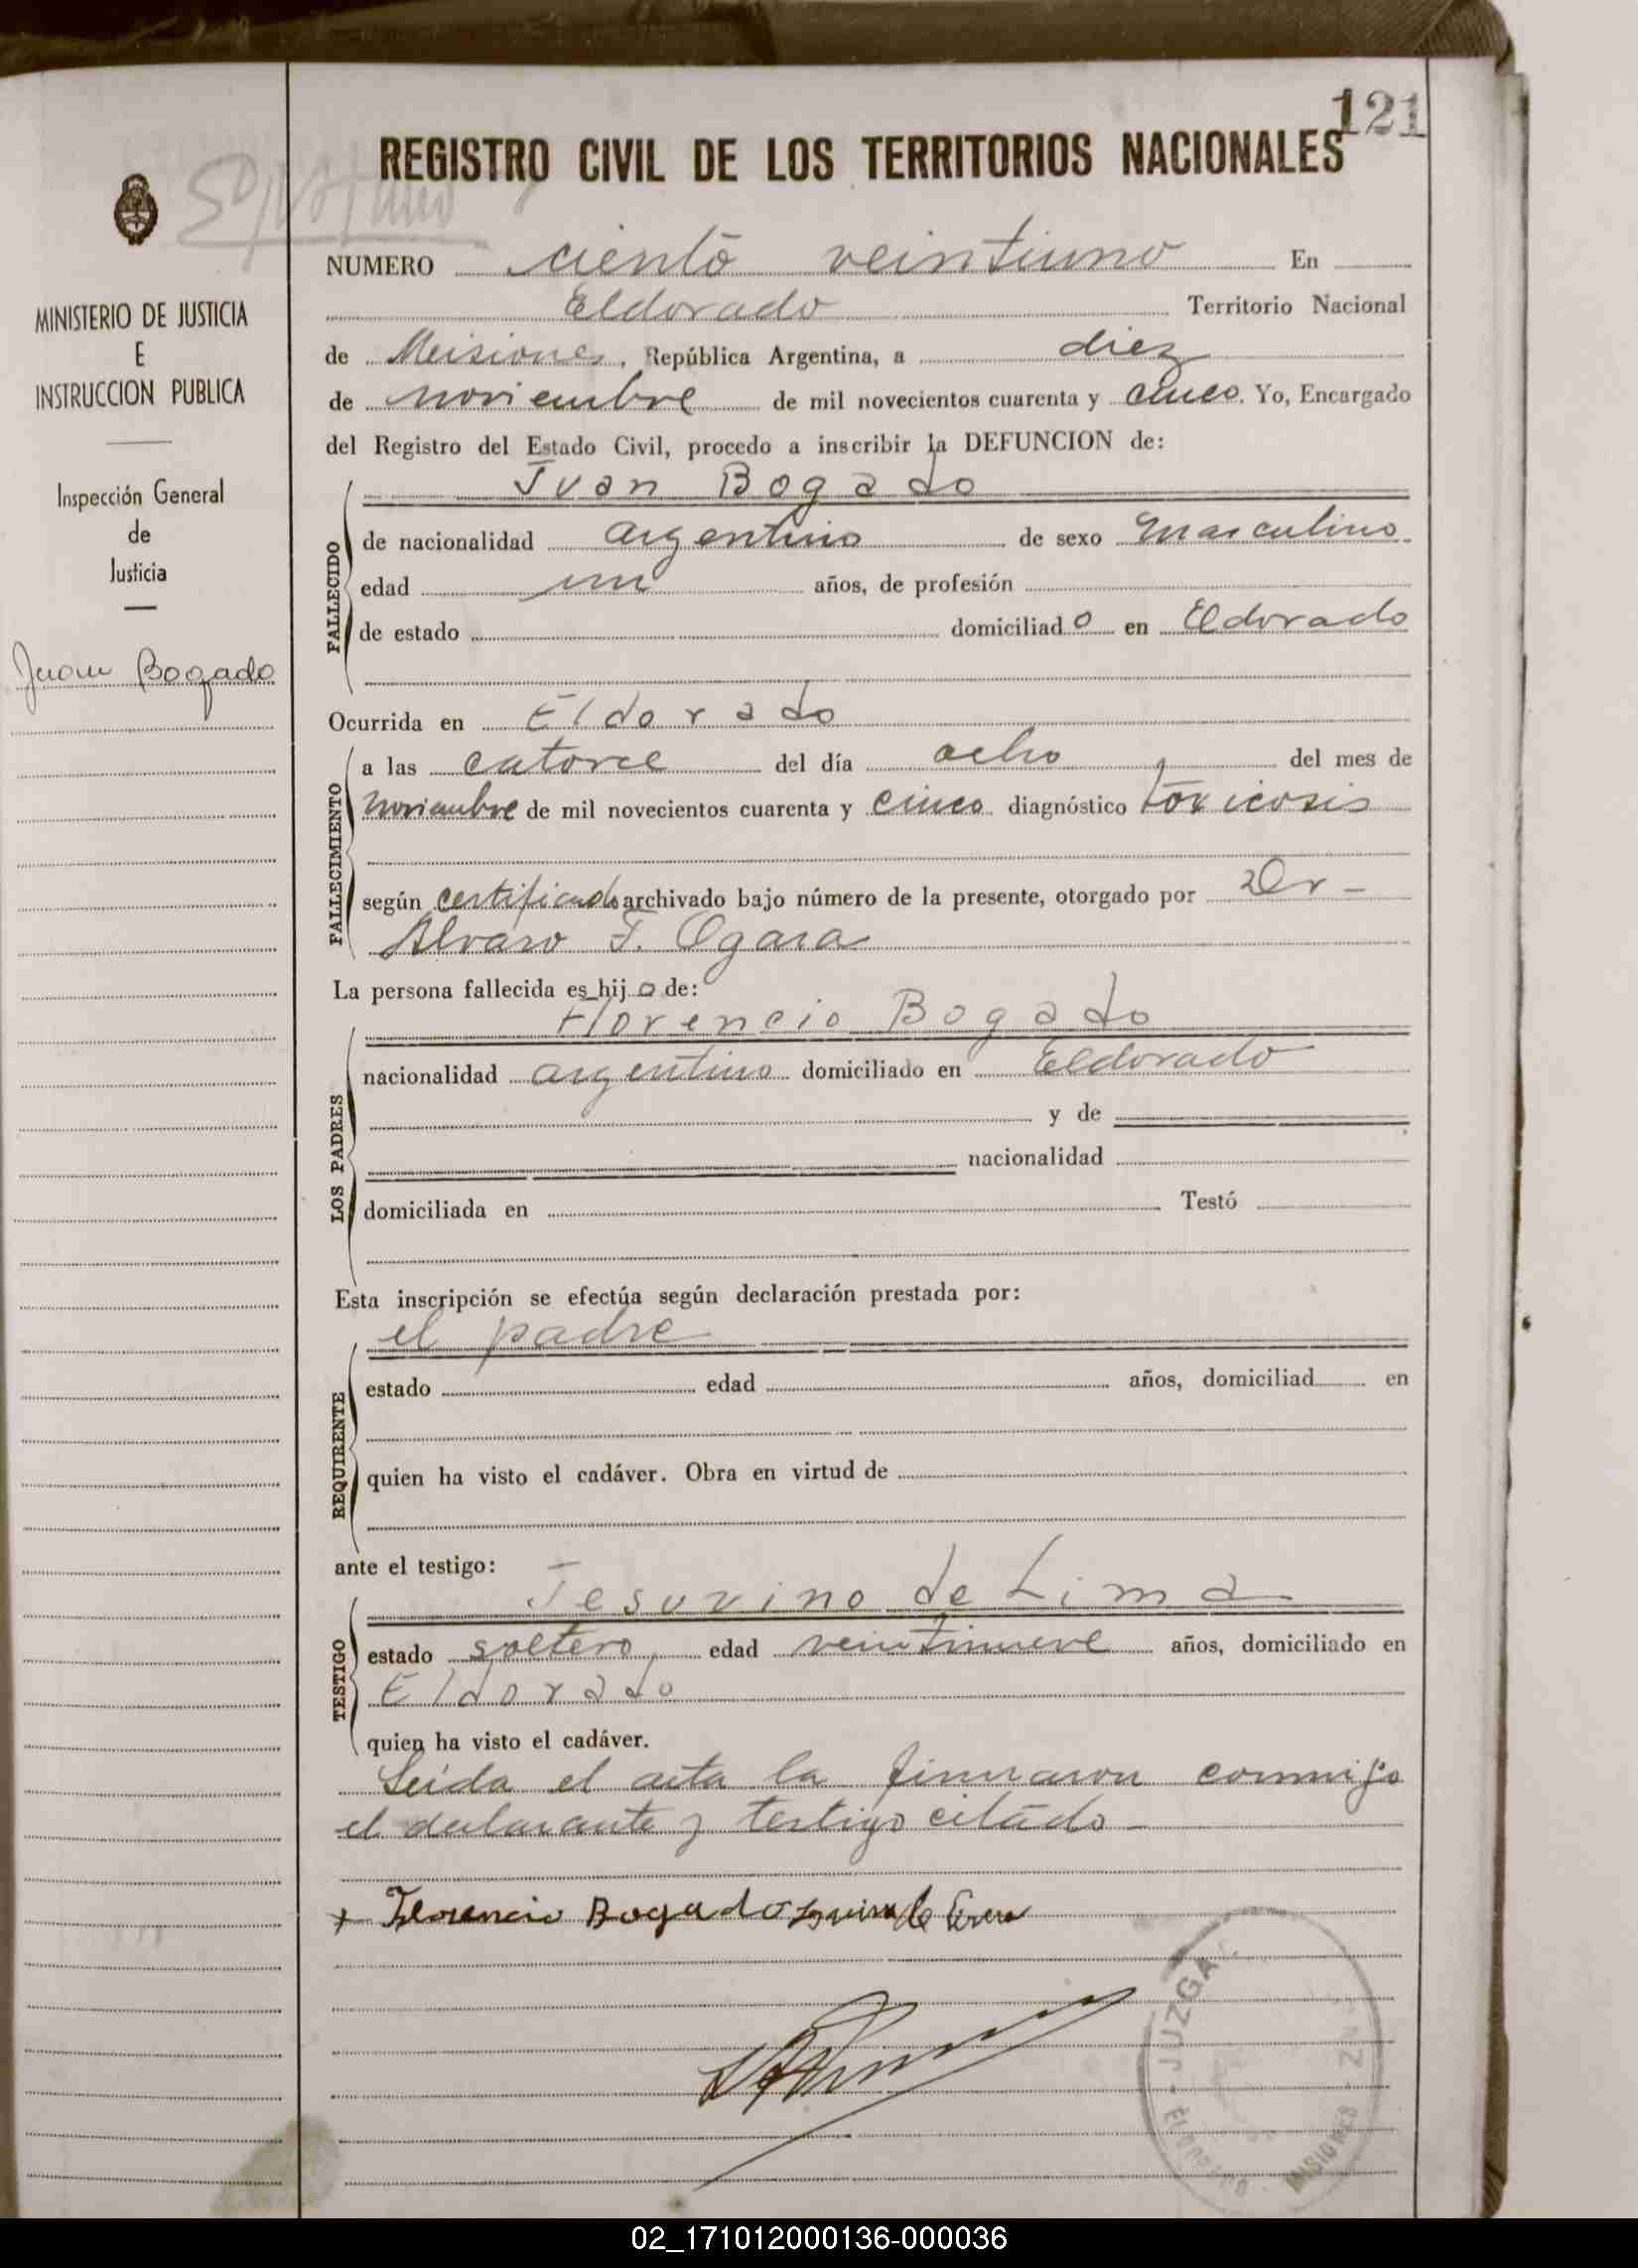 121
REGISTRO CIVIL DE LOS TERRITORIOS NACIONALES
MINISTERIO DE JUSTICIA
E
INSTRUCCION PUBLICA
Inspección General
de
Justicia
Juan Bogado
NUMERO ciento veintiuno En
Eldorado Territorio Nacional
de Misiones, República Argentina, a diez
de noviembre de mil novecientos cuarenta y cinco. Yo, Encargado
del Registro del Estado Civil, procedo a inscribir la DEFUNCION de:
Juan Bogado
FALLECIDO
de nacionalidad argentino de sexo masculino
edad un años, de profesión
de estado domiciliado en Eldorado
Ocurrida en Eldorado
FALLECIMIENTO
a las catorce del día ocho del mes de
noviembre de mil novecientos cuarenta y cinco diagnóstico toxicosis
según certificado archivado bajo número de la presente, otorgado por Dr -
Alvaro F. Ogara
La persona fallecida es hijo de:
Florencio Bogado
LOS PADRES
nacionalidad argentino domiciliado en Eldorado
y de
nacionalidad
domiciliada en Testó
Esta inscripción se efectúa según declaración prestada por:
el padre
REQUIRENTE
estado edad años, domiciliad en
quien ha visto el cadáver. Obra en virtud de
ante el testigo:
Jesuvino de Lima
TESTIGO
estado soltero, edad veintinueve años, domiciliado en
Eldorado
quien ha visto el cadáver.
Leída el acta la firmaron conmigo
el declarante y testigo citado -
Florencio Bogado
JUZGA
ELDORADO
MISIONES
02_171012000136-000036